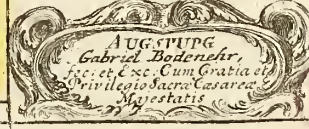 AUGSPURG
Gabriel Bodenehr,
fec: et Exc. Cum Gratia et
Privilegio Sacræ Cæsareæ
Majestatis